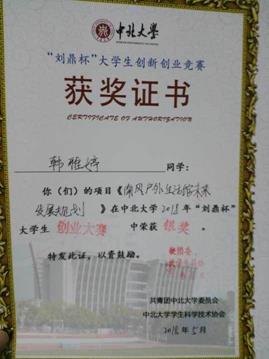 中北大學
“刘鼎杯”大学生创新创业竞赛
获奖证书
CERTIFICATE OF AUTHORIZATION
韩雅婷 同学:
你（们）的项目《南风户外生活馆未来
发展规划》在中北大学2018年“刘鼎杯”
大学生 创业大赛 中荣获 银奖
特发此证，以资鼓励。
共青团中北大学委员会
中北大学学生科学技术协会
2018年5月